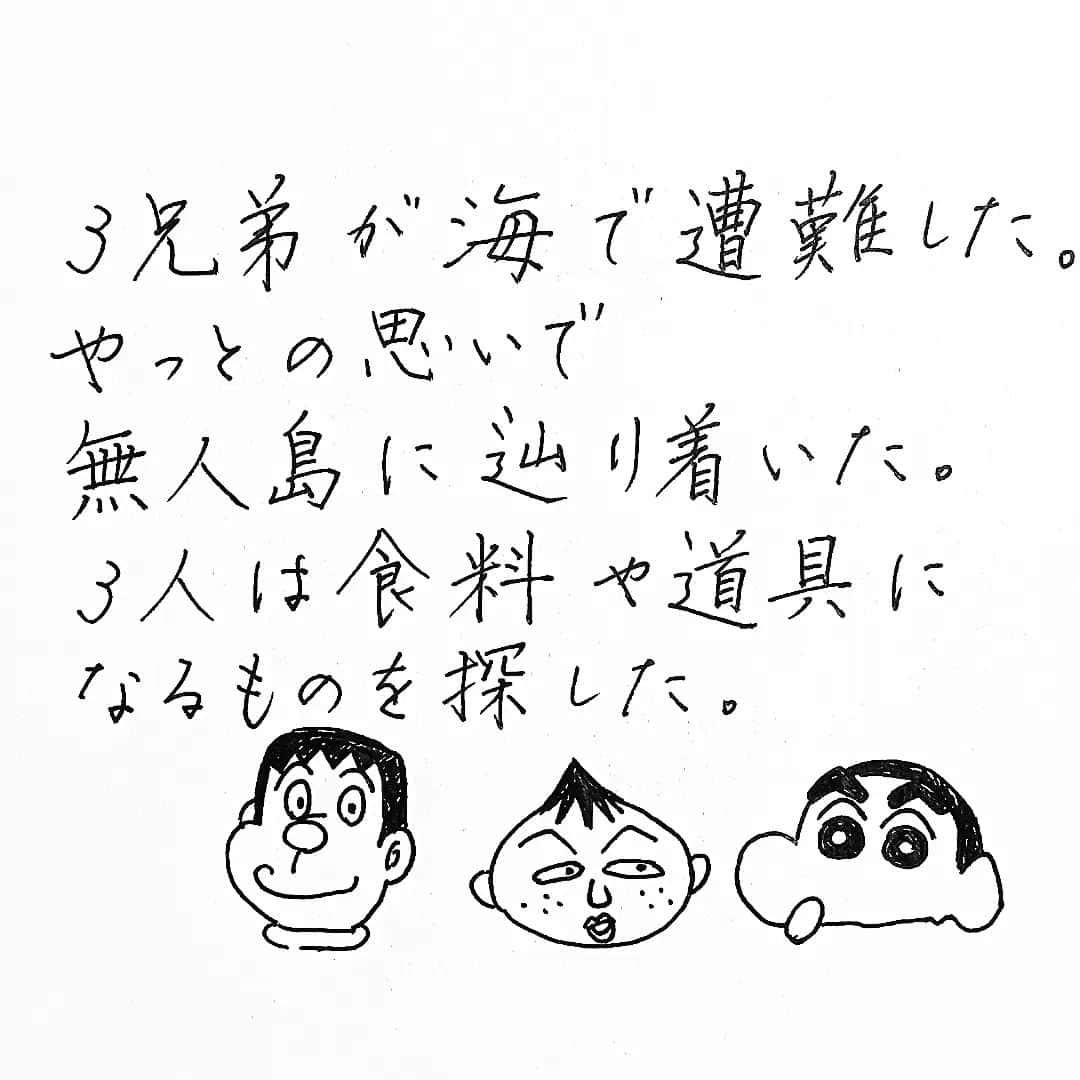 3兄弟が海で遭難した。
やっとの思いで
無人島に辿り着いた。
3人は食料や道具に
なるものを探した。